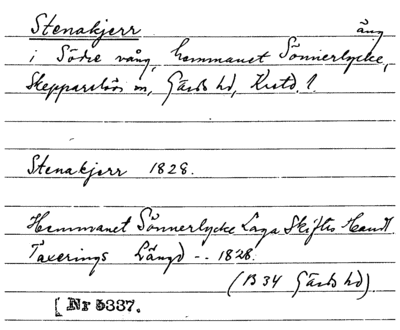 Stenakjerr äng
i Södre vång, hemmanet Sönnerlycke,
Skepparslövs sn, Gärds hd, Krstd. l.
Stenakjerr 1828.
Hemmanet Sönnerlycke Laga Skiftes Handl.
Taxerings Längd -- 1828.
(B 34 Gärds hd)
[ Nr 5337.